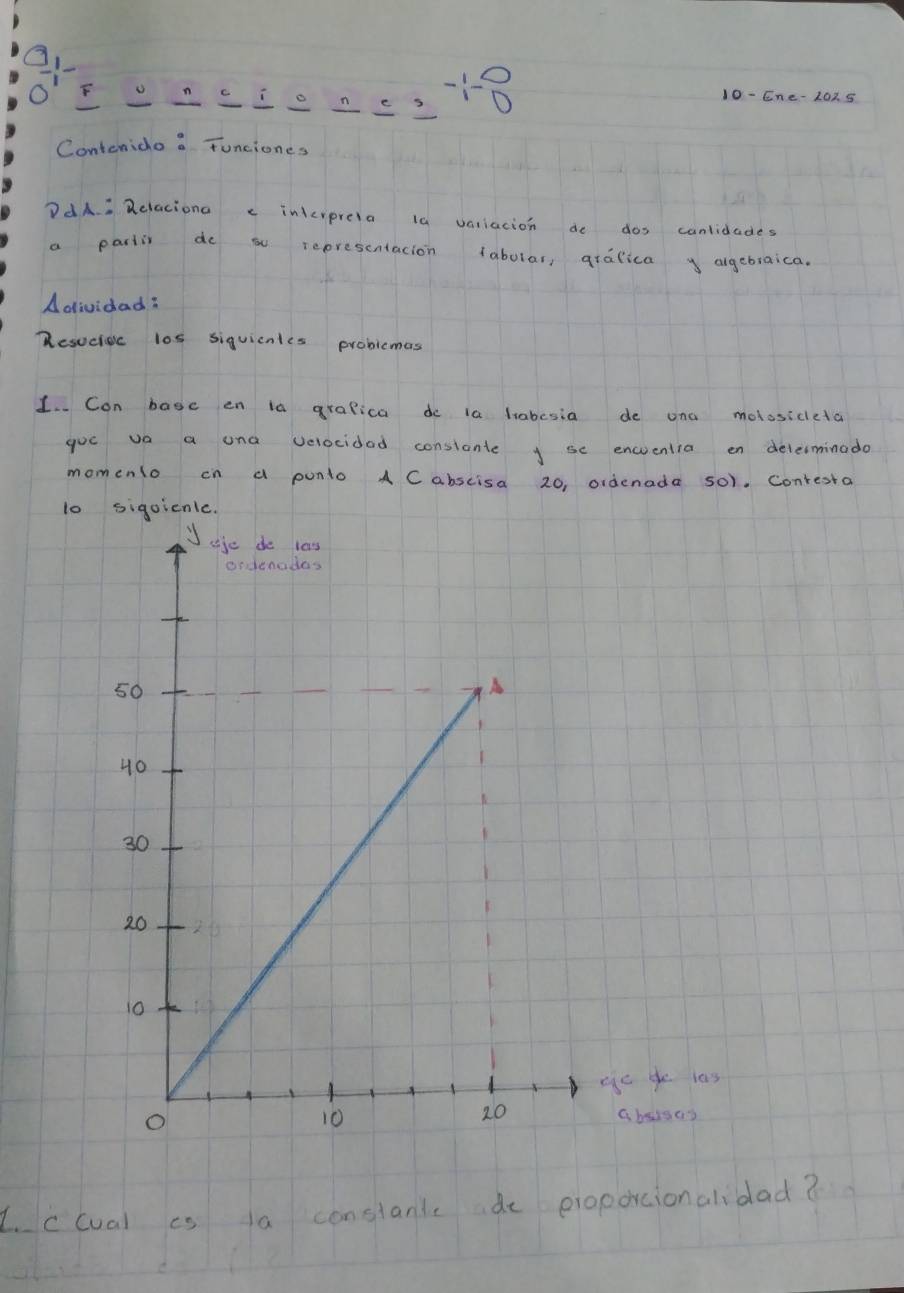 Funciones
10-Ene-2025
Contenido: Funciones
PdA.: Relaciona e interpreta la variación de dos cantidades
a partir de su representacion tabular, gráfica y algebraica.
Actividad:
Resuelve los siguientes problemas
I.. Con base en la grafica de la trabesia de una motosicleta
que va a una velocidad constante y se encuentra en determinado
momento en el punto A (abscisa 20, ordenada 50). Contesta
lo siguiente.
y eje de las
ordenadas
50
A
40
30
20
10
eje de las
absisas
0
10
20
1.. ¿Cual es la constante de proporcionalidad?